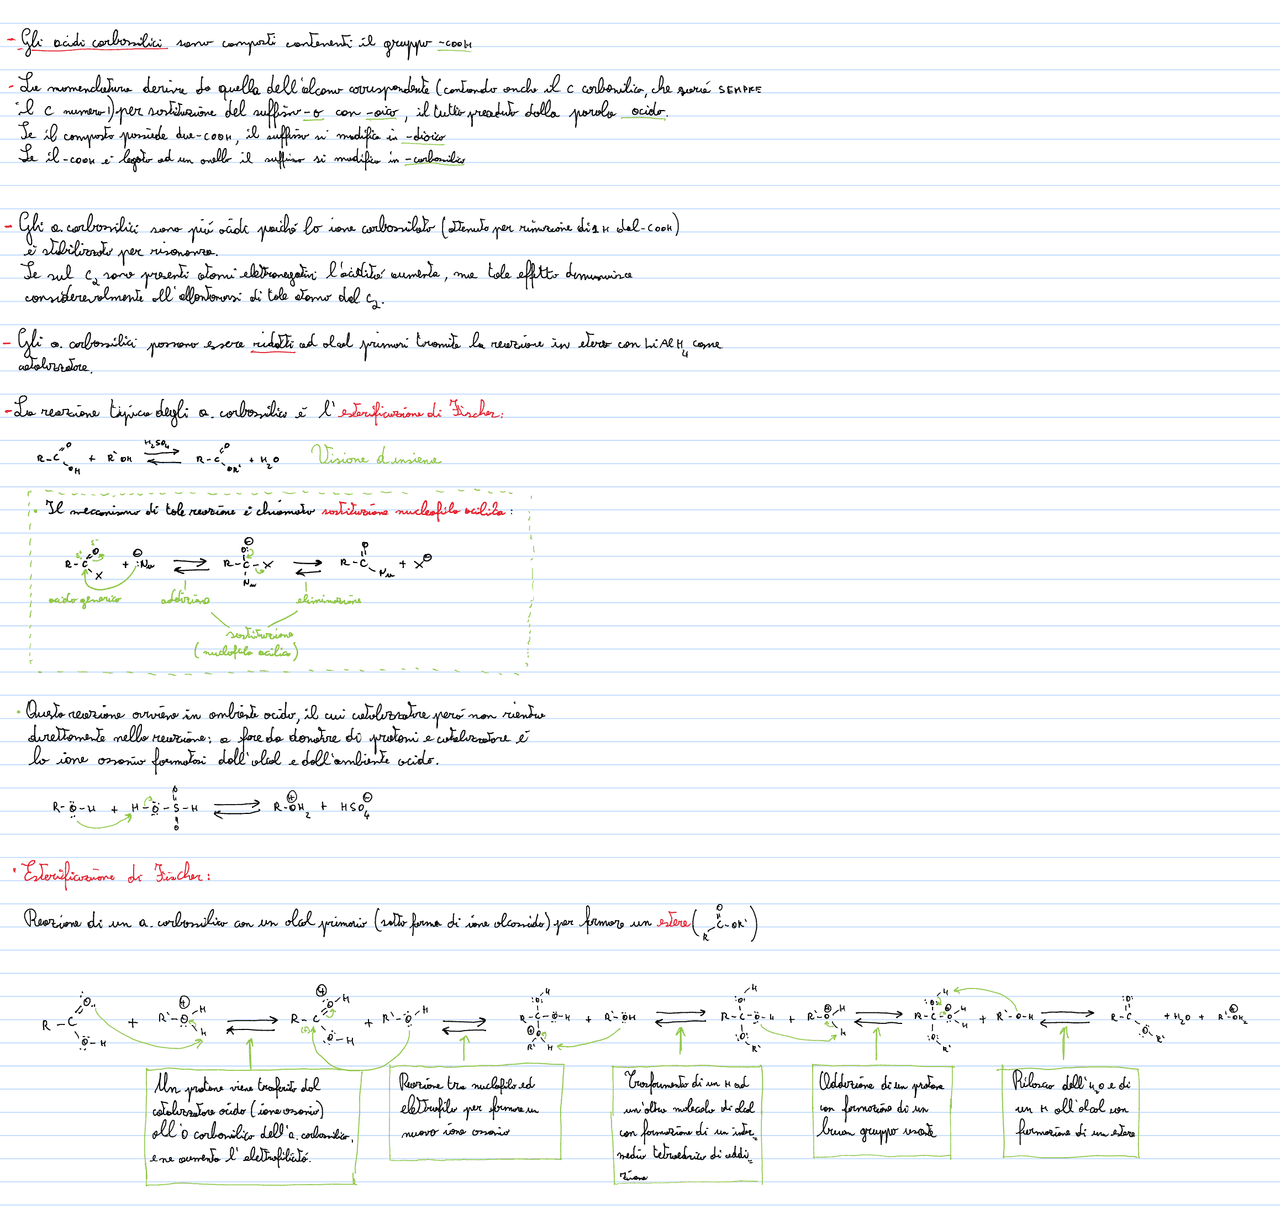 - Gli acidi carbossilici sono composti contenenti il gruppo -COOH
- La nomenclatura deriva da quella dell'alcano corrispondente (contando anche il C carbonilico, che sarà SEMPRE
il C numero 1) per sostituzione del suffisso -o con -oico, il tutto preceduto dalla parola acido.
Se il composto possiede due -COOH, il suffisso si modifica in -dioico
Se il -COOH è legato ad un anello il suffisso si modifica in -carbossilico
- Gli a. carbossilici sono più acidi poiché lo ione carbossilato (ottenuto per rimozione di 1 H dal -COOH)
è stabilizzato per risonanza.
Se sul C2 sono presenti atomi elettronegativi l'acidità aumenta, ma tale effetto diminuisce
considerevolmente all'allontanarsi di tale atomo dal C2.
- Gli a. carbossilici possono essere ridotti ad alcol primari tramite la reazione in etere con LiAlH4 come
catalizzatore.
- La reazione tipica degli a. carbossilici è l'esterificazione di Fischer:
R-C O OH + R'OH H2SO4 R-C O OR' + H2O Visione d'insieme
• Il meccanismo di tale reazione è chiamato sostituzione nucleofila acilica:
R-C O X + ⊖:Nu R-C-X O ⊖ Nu R-C O Nu + X⊖
acido generico addizione eliminazione
sostituzione
(nucleofila acilica)
• Questa reazione avviene in ambiente acido, il cui catalizzatore però non rientra
direttamente nella reazione: a fare da donatore di protoni e catalizzatore è
lo ione ossonio formatosi dall'alcol e dall'ambiente acido.
R-O-H + H-O-S-H O O R-OH2 ⊕ + HSO4 ⊖
• Esterificazione di Fischer:
Reazione di un a. carbossilico con un alcol primario (sotto forma di ione alcossido) per formare un estere (R C O -OR')
R-C O O-H + R'-O ⊕ H H R-C O-H ⊕ O-H + R'-O H R-C-O-H + R'-OH R-C-O-H + R'-O H H R-C-O H H + R'-O-H R-C O O R' + H2O + R'-OH2 ⊕
Un protone viene trasferito dal
catalizzatore acido (ione ossonio)
all'O carbonilico dell'a. carbossilico,
e ne aumenta l'elettrofilicità.
Reazione tra nucleofilo ed
elettrofilo per formare un
nuovo ione ossonio
Trasferimento di un H ad
un'altra molecola di alcol
con formazione di un inter-
medio tetraedrico di addi-
zione
Addizione di un protone
con formazione di un
buon gruppo uscente
Rilascio dell'H2O e di
un H all'alcol con
formazione di un estere